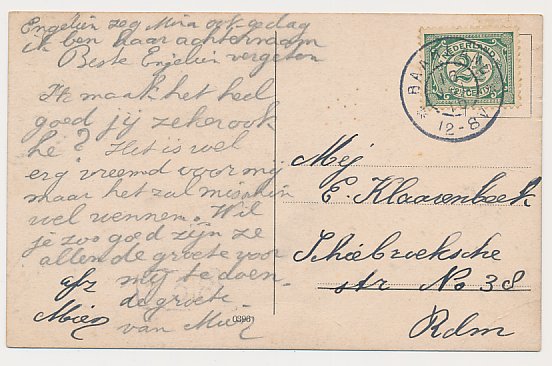 Engelien zeg Mina ook gedag
ik ben haar achternaam
Beste Engelien vergeten
Ik maak het heel
goed jij zeker ook
hè? Het is wel
erg vreemd voor mij
maar het zal misschien
wel wennen. Wil
je zoo goed zijn ze
allen de groete voor
mij te doen.
de groete
van Mien
afz
Mien
03961
NEDERLAND
2½
BAARN
12-8
Mej
E. Klaasenboek
Schiebroeksche
str No 38
Rdm